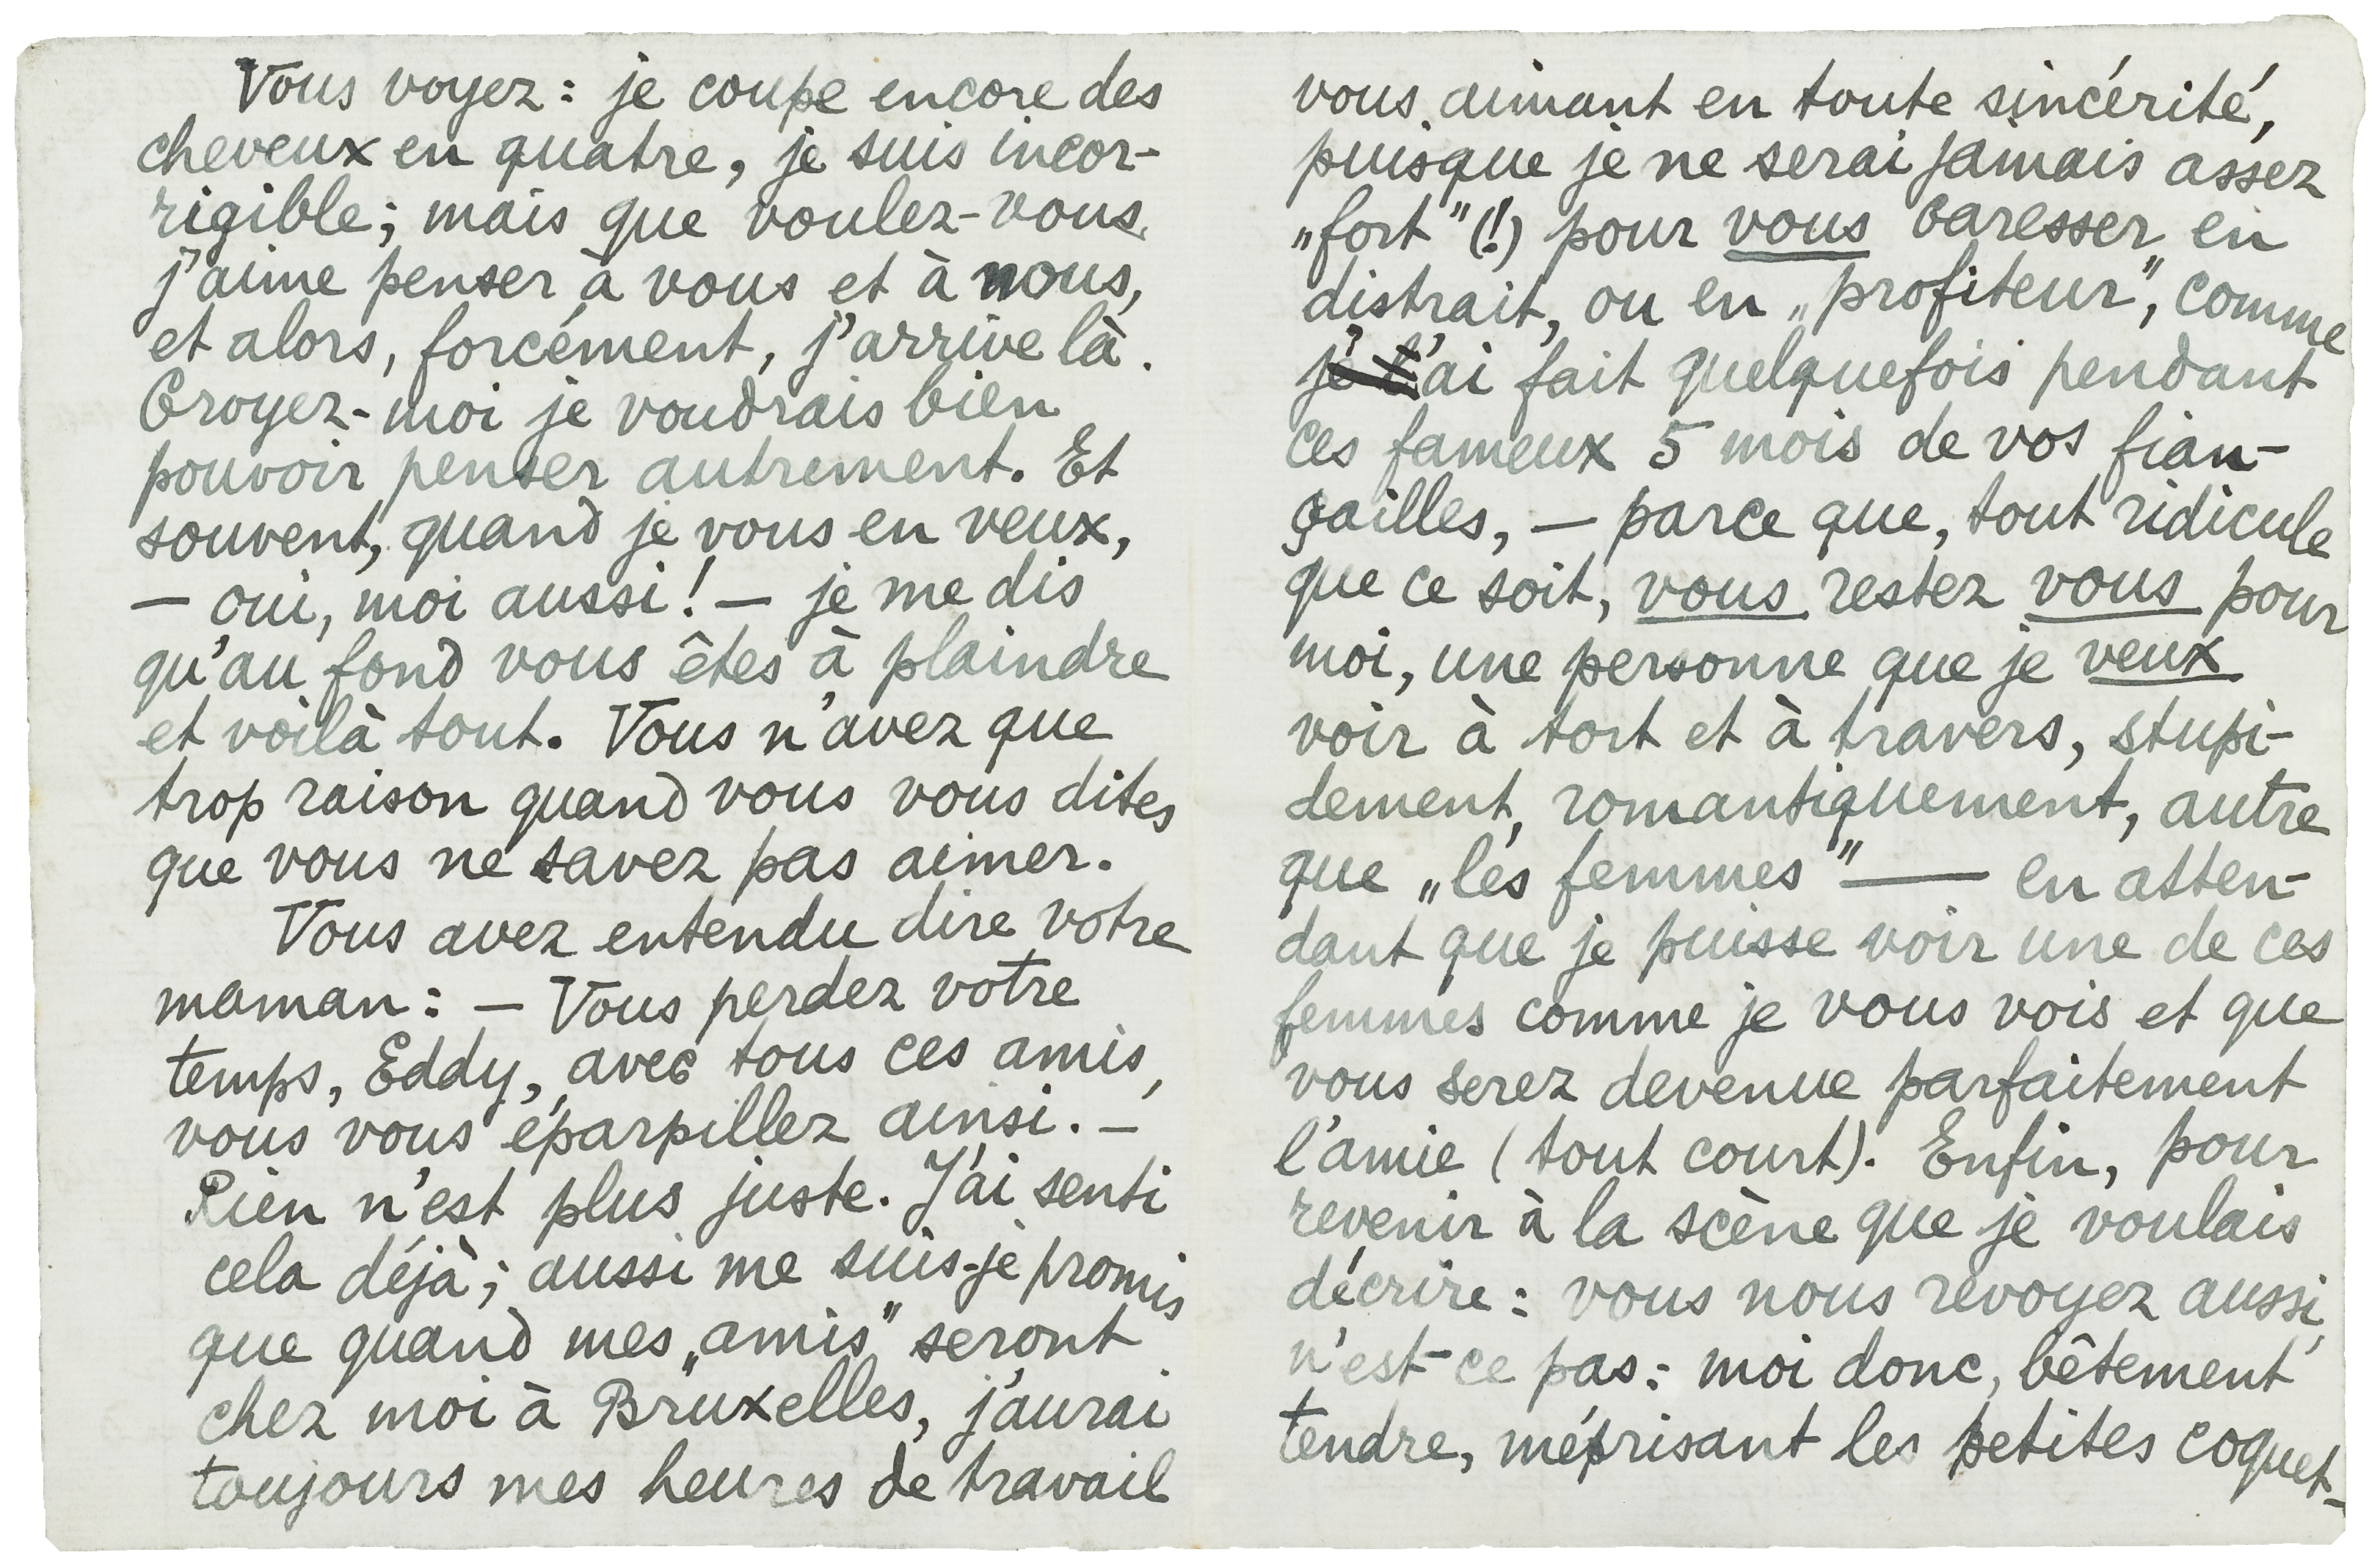 Vous voyez : je coupe encore des
cheveux en quatre, je suis incor-
rigible; mais que voulez-vous,
j'aime penser à vous et à nous,
et alors, forcément, j'arrive là.
Croyez-moi je voudrais bien
pouvoir penser autrement. Et
souvent, quand je vous en veux,
— oui, moi aussi! — je me dis
qu'au fond vous êtes à plaindre
et voilà tout. Vous n'avez que
trop raison quand vous vous dites
que vous ne savez pas aimer.
Vous avez entendu dire votre
maman : — Vous perdez votre
temps, Eddy, avec tous ces amis,
vous vous éparpillez ainsi. —
Rien n'est plus juste. J'ai senti
cela déjà; aussi me suis-je promis
que quand mes „amis" seront
chez moi à Bruxelles, j'aurai
toujours mes heures de travail
vous aimant en toute sincérité,
puisque je ne serai jamais assez
„fort" (!) pour vous caresser en
distrait, ou en „profiteur", comme
j'ai fait quelquefois pendant
ces fameux 5 mois de vos fian-
çailles, — parce que, tout ridicule
que ce soit, vous restez vous pour
moi, une personne que je veux
voir à tort et à travers, stupi-
dement, romantiquement, autre
que „les femmes" — en atten-
dant que je puisse voir une de ces
femmes comme je vous vois et que
vous serez devenue parfaitement
l'amie (tout court). Enfin, pour
revenir à la scène que je voulais
décrire : vous nous revoyez aussi,
n'est-ce pas : moi donc, bêtement
tendre, méprisant les petites coquet-